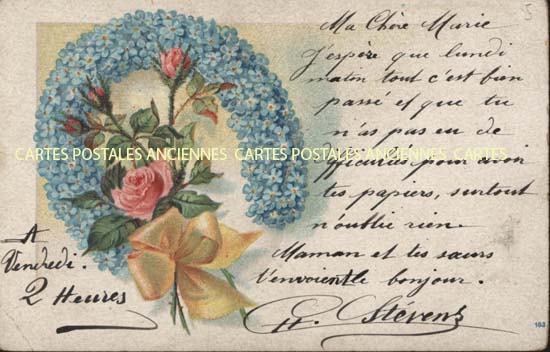 5
Ma Chère Marie
J'espère que lundi
matin tout c'est bien
passé et que tu
n'as pas eu de
CARTES POSTALES ANCIENNES CARTES POSTALES ANCIENNES CARTES POSTALES
difficultés pour avoir
tes papiers, surtout
n'oublie rien.
Maman et tes sœurs
t'envoient le bonjour.
H. Stévens
A
Vendredi.
2 Heures